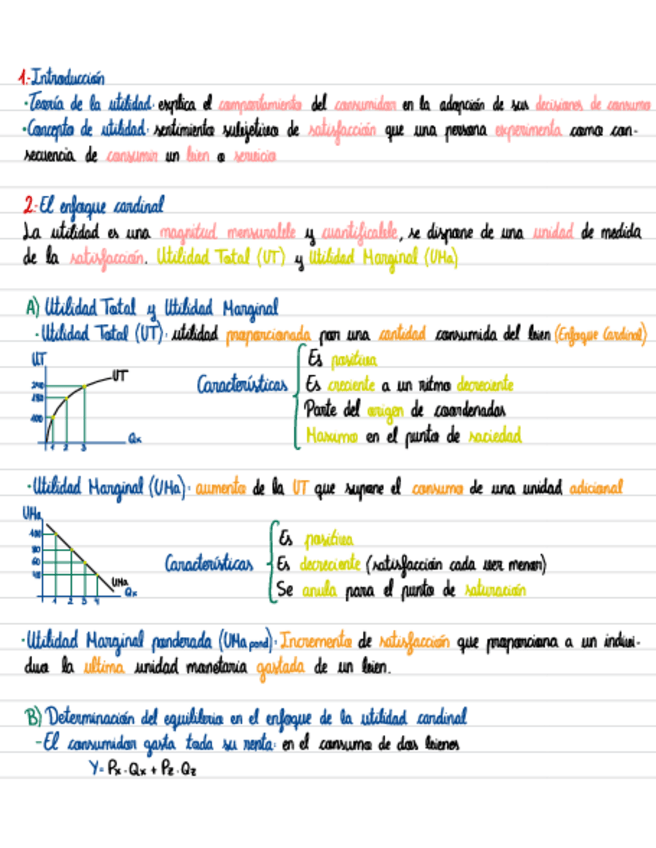 1.-Introducción
·Teoría de la utilidad: explica el comportamiento del consumidor en la adopción de sus decisiones de consumo
·Concepto de utilidad: sentimiento subjetivo de satisfacción que una persona experimenta como con-
secuencia de consumir un bien o servicio
2.-El enfoque cardinal
La utilidad es una magnitud mensurable y cuantificable, se dispone de una unidad de medida
de la satisfacción. Utilidad Total (UT) y Utilidad Marginal (UMa)
A) Utilidad Total y Utilidad Marginal
·Utilidad Total (UT): utilidad proporcionada por una cantidad consumida del bien (Enfoque Cardinal)
UT
UT
100
1 2 3
Qx
Características
Es positiva
Es creciente a un ritmo decreciente
Parte del origen de coordenadas
Maximo en el punto de saciedad
·Utilidad Marginal (UMa): aumento de la UT que supone el consumo de una unidad adicional
UMa
100
80
60
UMa
Qx
1 2 3 4
Características
Es positiva
Es decreciente (satisfacción cada vez menor)
Se anula para el punto de saturación
·Utilidad Marginal ponderada (UMa pond): Incremento de satisfacción que proporciona a un indivi-
duo la ultima unidad monetaria gastada de un bien.
B) Determinación del equilibrio en el enfoque de la utilidad cardinal
-El consumidor gasta toda su renta: en el consumo de dos bienes
Y= Px·Qx + Pz·Qz